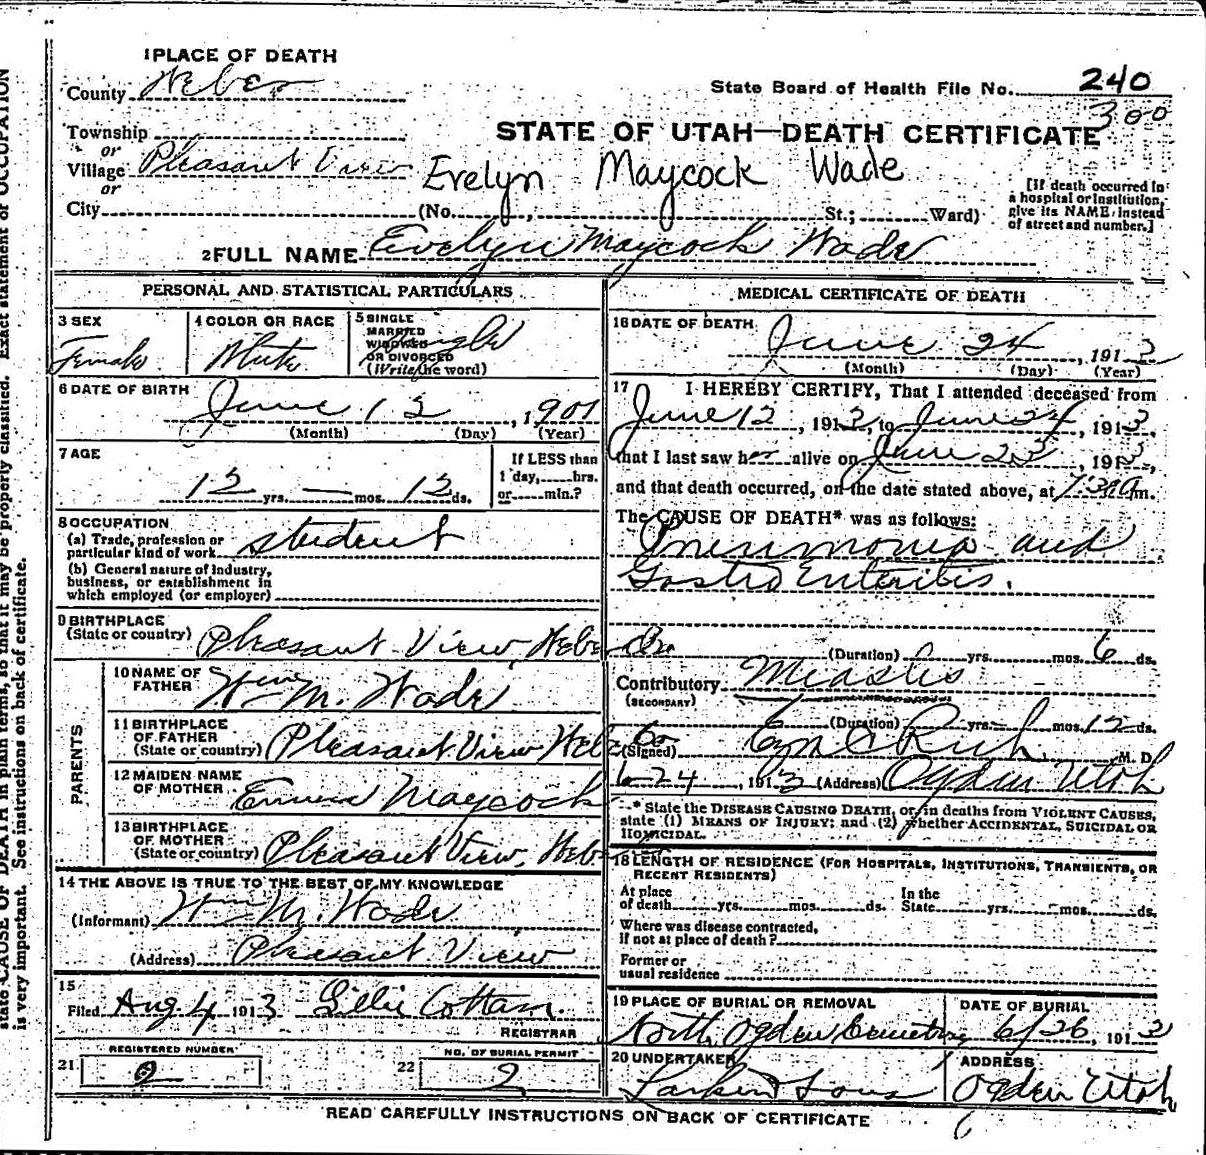 1 PLACE OF DEATH
County Weber
State Board of Health File No. 240
300
Township
or
STATE OF UTAH—DEATH CERTIFICATE
Village Pleasant View
Evelyn Maycock Wade
or
City (No. , St.; Ward)
[If death occurred in a hospital or institution, give its NAME instead of street and number.]
2 FULL NAME Evelyn Maycock Wade
PERSONAL AND STATISTICAL PARTICULARS
3 SEX
Female
4 COLOR OR RACE
White
5 SINGLE
MARRIED
WIDOWED
OR DIVORCED
(Write the word)
Single
6 DATE OF BIRTH
June 12, 1901
(Month) (Day) (Year)
7 AGE
12 yrs. — mos. 12 ds.
If LESS than
1 day, hrs.
or min.?
8 OCCUPATION
(a) Trade, profession or
particular kind of work student
(b) General nature of industry,
business, or establishment in
which employed (or employer)
9 BIRTHPLACE
(State or country) Pleasant View, Weber Co.
PARENTS
10 NAME OF
FATHER Wm M. Wade
11 BIRTHPLACE
OF FATHER
(State or country) Pleasant View Weber Co
12 MAIDEN NAME
OF MOTHER Emma Maycock
13 BIRTHPLACE
OF MOTHER
(State or country) Pleasant View, Weber
14 THE ABOVE IS TRUE TO THE BEST OF MY KNOWLEDGE
(Informant) Wm M. Wade
(Address) Pleasant View
15
Filed Aug. 4 1913 Lillie Cottam.
REGISTRAR
21 REGISTERED NUMBER
22 NO. OF BURIAL PERMIT
2
MEDICAL CERTIFICATE OF DEATH
16 DATE OF DEATH
June 24, 1913
(Month) (Day) (Year)
17 I HEREBY CERTIFY, That I attended deceased from
June 12, 1913, to June 24, 1913,
that I last saw her alive on June 23, 1913,
and that death occurred, on the date stated above, at 7:30 a m.
The CAUSE OF DEATH* was as follows:
Pneumonia and
Gastro Enteritis.
(Duration) yrs. mos. 6 ds.
Contributory Measles
(SECONDARY)
(Duration) yrs. mos. 12 ds.
(Signed) Rich, M. D.
6-24, 1913 (Address) Ogden Utah
* State the DISEASE CAUSING DEATH, or, in deaths from VIOLENT CAUSES,
state (1) MEANS OF INJURY; and (2) whether ACCIDENTAL, SUICIDAL OR
HOMICIDAL.
18 LENGTH OF RESIDENCE (FOR HOSPITALS, INSTITUTIONS, TRANSIENTS, OR
RECENT RESIDENTS)
At place
of death yrs. mos. ds.
In the
State yrs. mos. ds.
Where was disease contracted,
if not at place of death?
Former or
usual residence
19 PLACE OF BURIAL OR REMOVAL
North Ogden Cemetery
DATE OF BURIAL
6/26, 1913
20 UNDERTAKER
Larkin & Sons
ADDRESS
Ogden Utah
READ CAREFULLY INSTRUCTIONS ON BACK OF CERTIFICATE
state CAUSE OF DEATH in plain terms, so that it may be properly classified. Exact statement of OCCUPATION
is very important. See instructions on back of certificate.